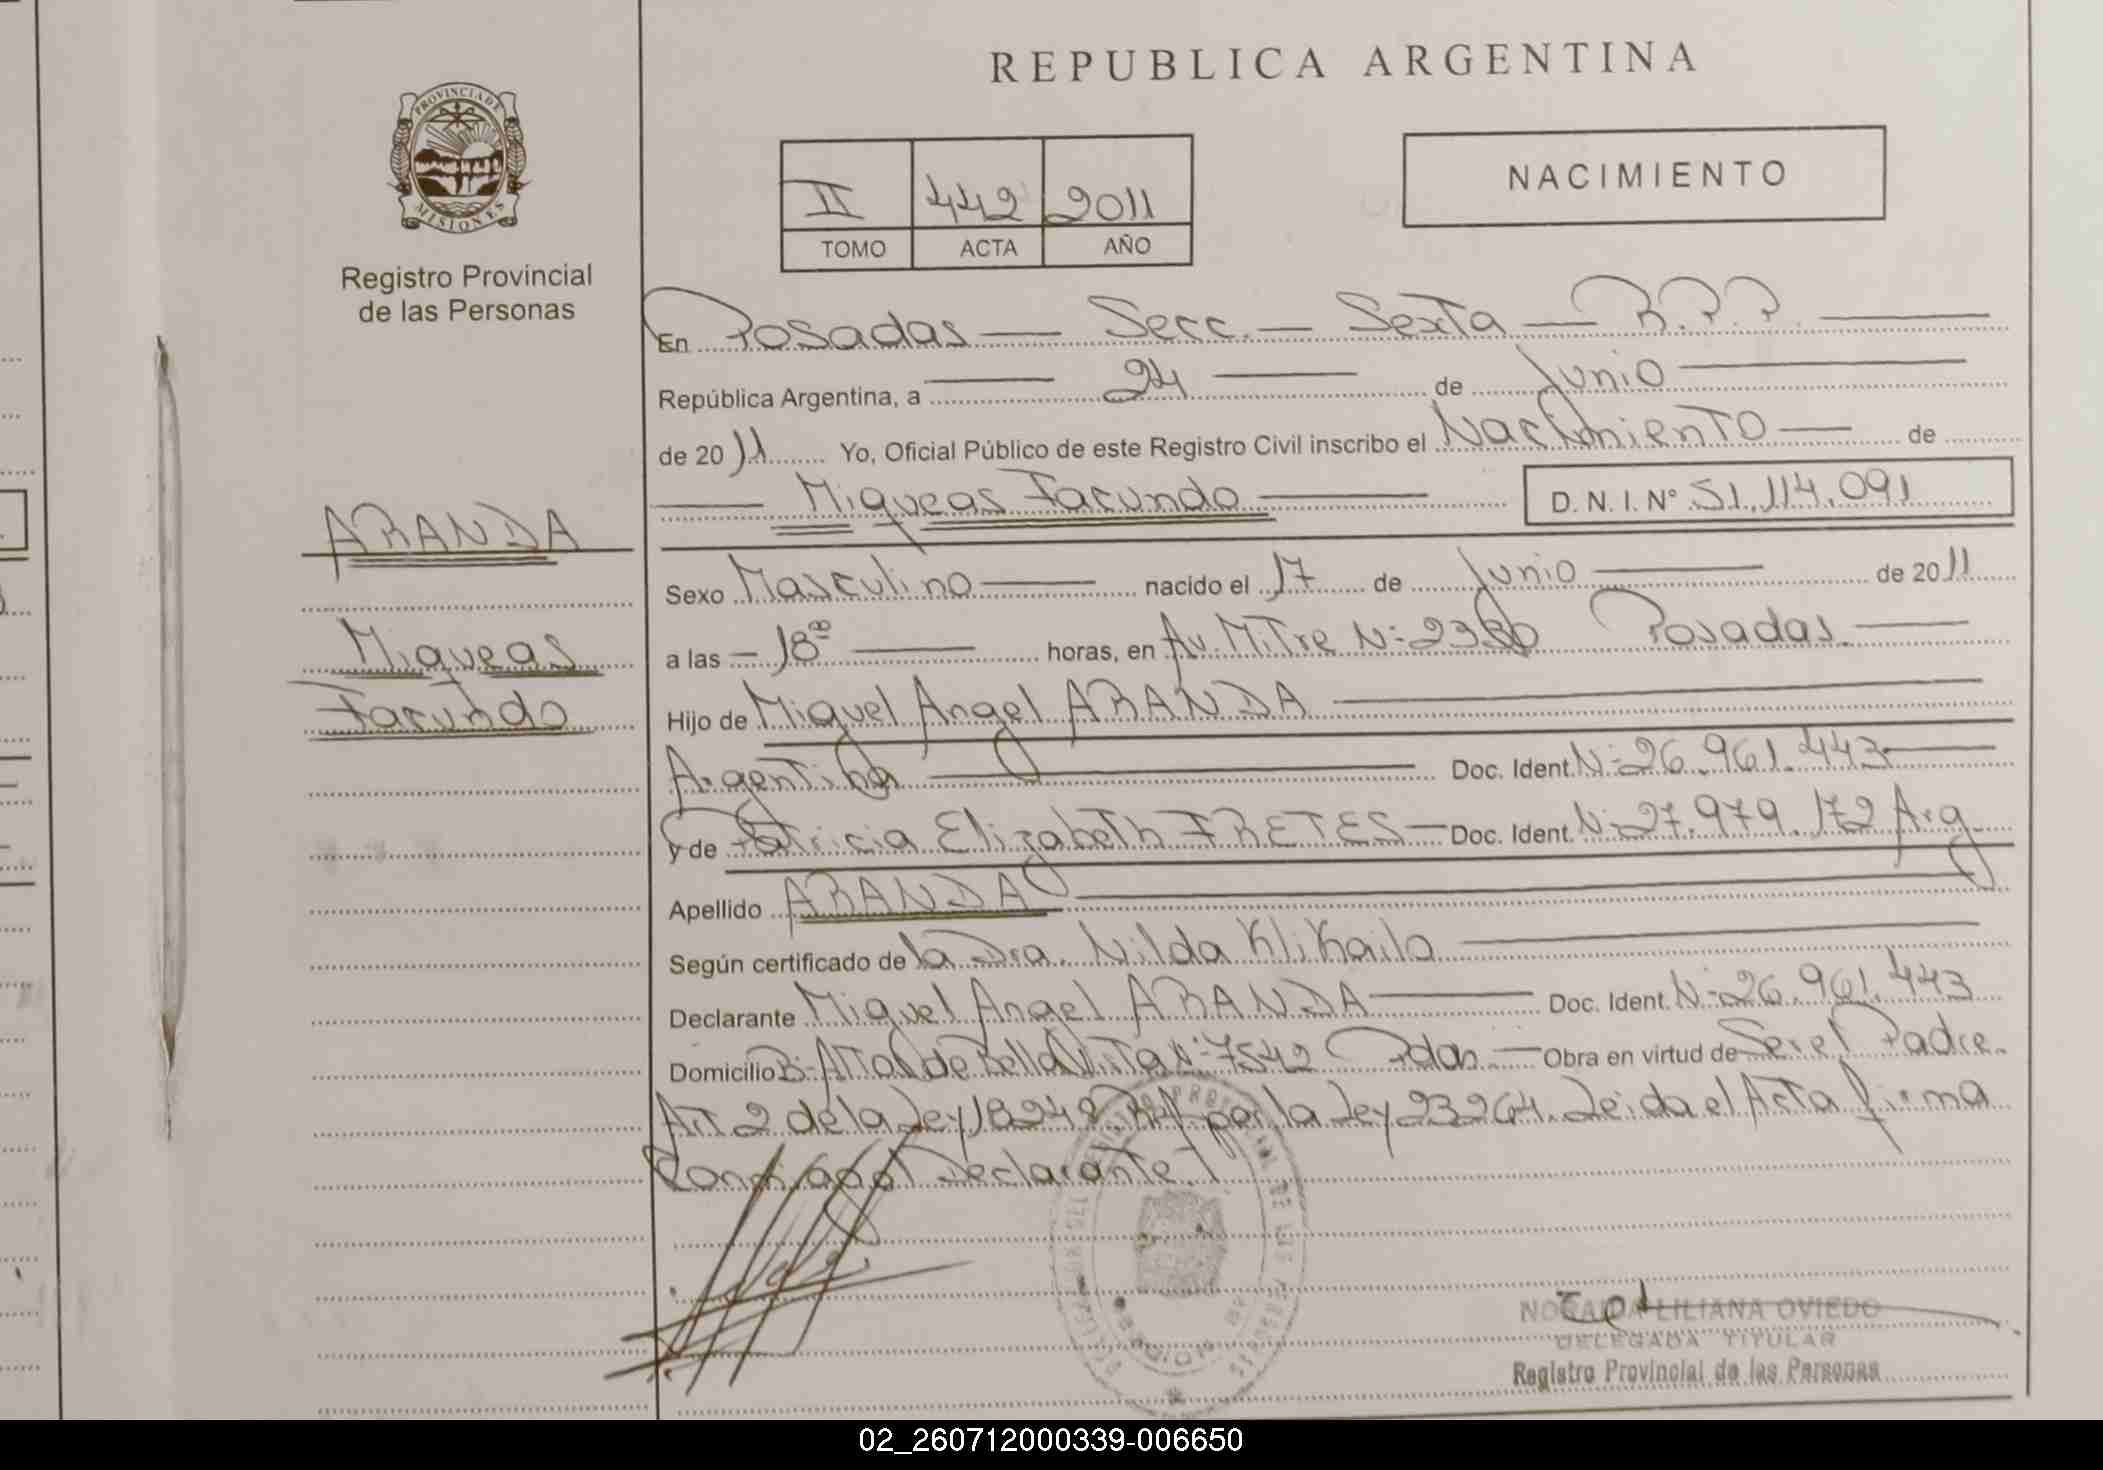 REPUBLICA ARGENTINA
PROVINCIA DE
MISIONES
Registro Provincial
de las Personas
II 442 2011
TOMO ACTA AÑO
NACIMIENTO
En Posadas — Secc. — Sexta — R.P.P. —
República Argentina, a — 24 — de Junio —
de 2011 Yo, Oficial Público de este Registro Civil inscribo el Nacimiento — de
— Miqueas Facundo — D. N. I. Nº 51.114.091
ARANDA
Miqueas
Facundo
Sexo Masculino — nacido el 17 de Junio — de 2011
a las — 18ºº — horas, en Av. Mitre Nº 2380 Posadas. —
Hijo de Miguel Angel ARANDA —
Argentina — Doc. Ident. Nº 26.961.443 —
y de Patricia Elizabeth FRETES — Doc. Ident. Nº 27.979.172 Arg
Apellido ARANDA —
Según certificado de la Dra. Nilda Klikailo —
Declarante Miguel Angel ARANDA — Doc. Ident. Nº 26.961.443
Domicilio Bº Altos de Bella Vista Nº 7542 Pdas. — Obra en virtud de Ser el Padre.
Art 2 de la Ley 18248 por la Ley 23264. Leida el Acta firma
Conmigo el Declarante.
NORAIDA LILIANA OVIEDO
DELEGADA TITULAR
Registro Provincial de las Personas
02_260712000339-006650